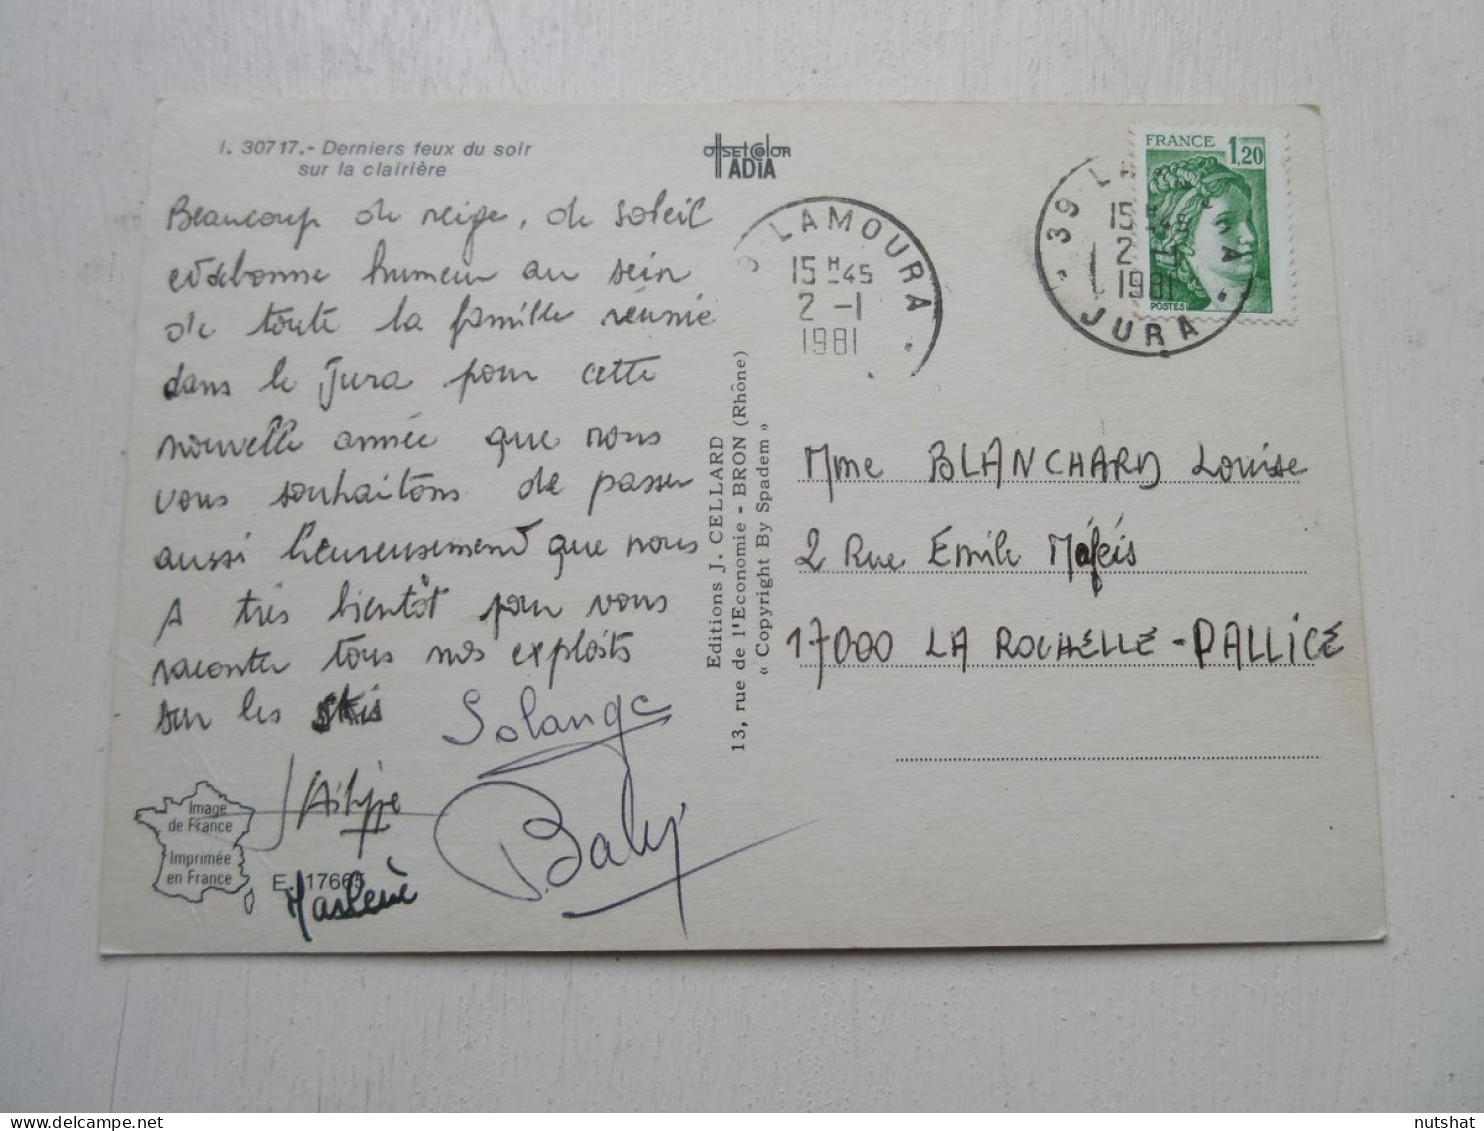 I. 30717.- Derniers feux du soir
sur la clairière
OffsetColor
ADIA
Beaucoup de neige, de soleil
et de bonne humeur au sein
de toute la famille réunie
dans le Jura pour cette
nouvelle année que nous
vous souhaitons de passer
aussi heureusement que nous
A très bientôt pour vous
raconter tous nos exploits
sur les skis
Solange
Philippe
Marlène
Image
de France
Imprimée
en France
E. 17665
Editions J. CELLARD
13, rue de l'Economie - BRON (Rhône)
« Copyright By Spadem »
LAMOURA
15 H 45
2 -1
1981
39 LA
15 H 45
2 -1
1981
JURA
FRANCE 1,20
POSTES
Mme BLANCHARD Louise
2 Rue Emile
17000 LA ROCHELLE-PALLICE
nutshat